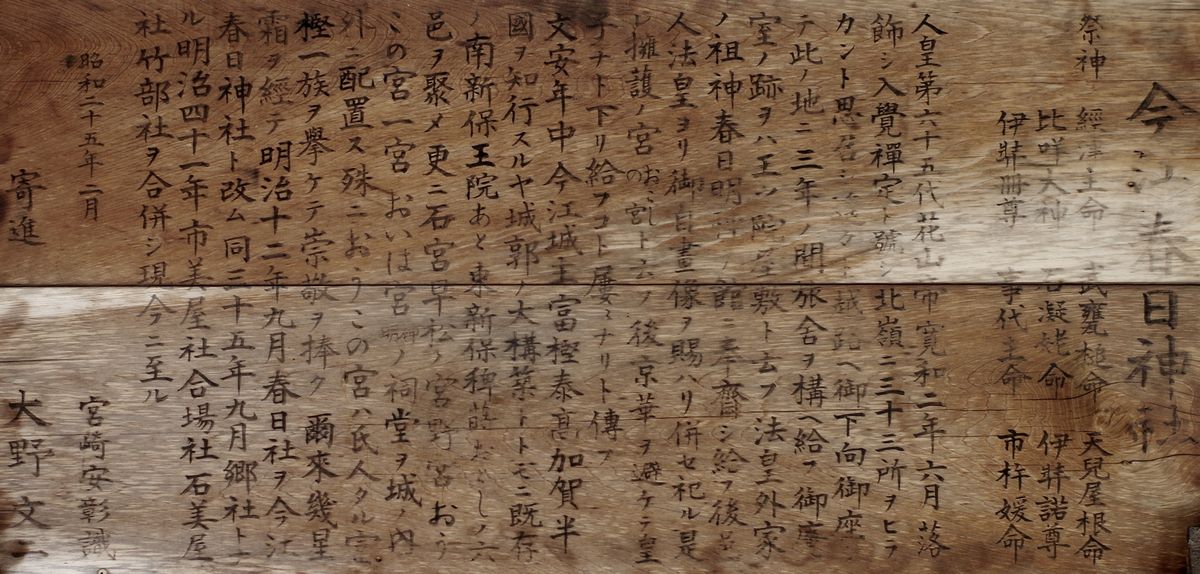 今江春日神社
祭神 經津主命 武甕槌命 天兒屋根命
比咩大神 石凝姥命 伊弉諾尊
伊弉冊尊 事代主命 市杵媛命
人皇第六十五代花山帝寛和二年六月落
飾シ入覺禪定ト號シ北嶺ニ三十三所ヲヒラ
カント思召シ 越 ヘ御下向御座
テ此ノ地ニ三年ノ間旅舍ヲ構ヘ給フ御座
室ノ跡ヲハ王ツ 屋敷ト云フ法皇外家
ノ祖神春日明 ノ館ニ奉齋シ給フ後
人法皇ヨリ御自畫像ヲ賜ハリ併セ祀ル是
レ擁護ノ宮 の宮ト云フ後京華ヲ避ケテ皇
子ナト下リ給フコト屢々ナリト傳フ
文安年中今江城主富樫泰高加賀半
國ヲ知行スルヤ城郭ノ大構築ートモニ既存
ノ南新保王院あと東新保稗 しノ六
邑ヲ聚メ更ニ石宮早松ノ宮野ノ宮おう
この宮一宮おいは宮 ノ祠堂ヲ城ノ内
外ニ配置ス殊ニおうこの宮ハ氏人タル富
樫一族ヲ擧ケテ崇敬ヲ捧ク爾來幾星
霜ヲ經テ明治十二年九月春日社ヲ今江
春日神社ト改ム同三十五年九月郷社ト
ル明治四十一年市美屋社合場社石美屋
社竹部社ヲ合併シ現今ニ至ル
昭和二十五年二月 宮崎安彰識
寄進 大野文二